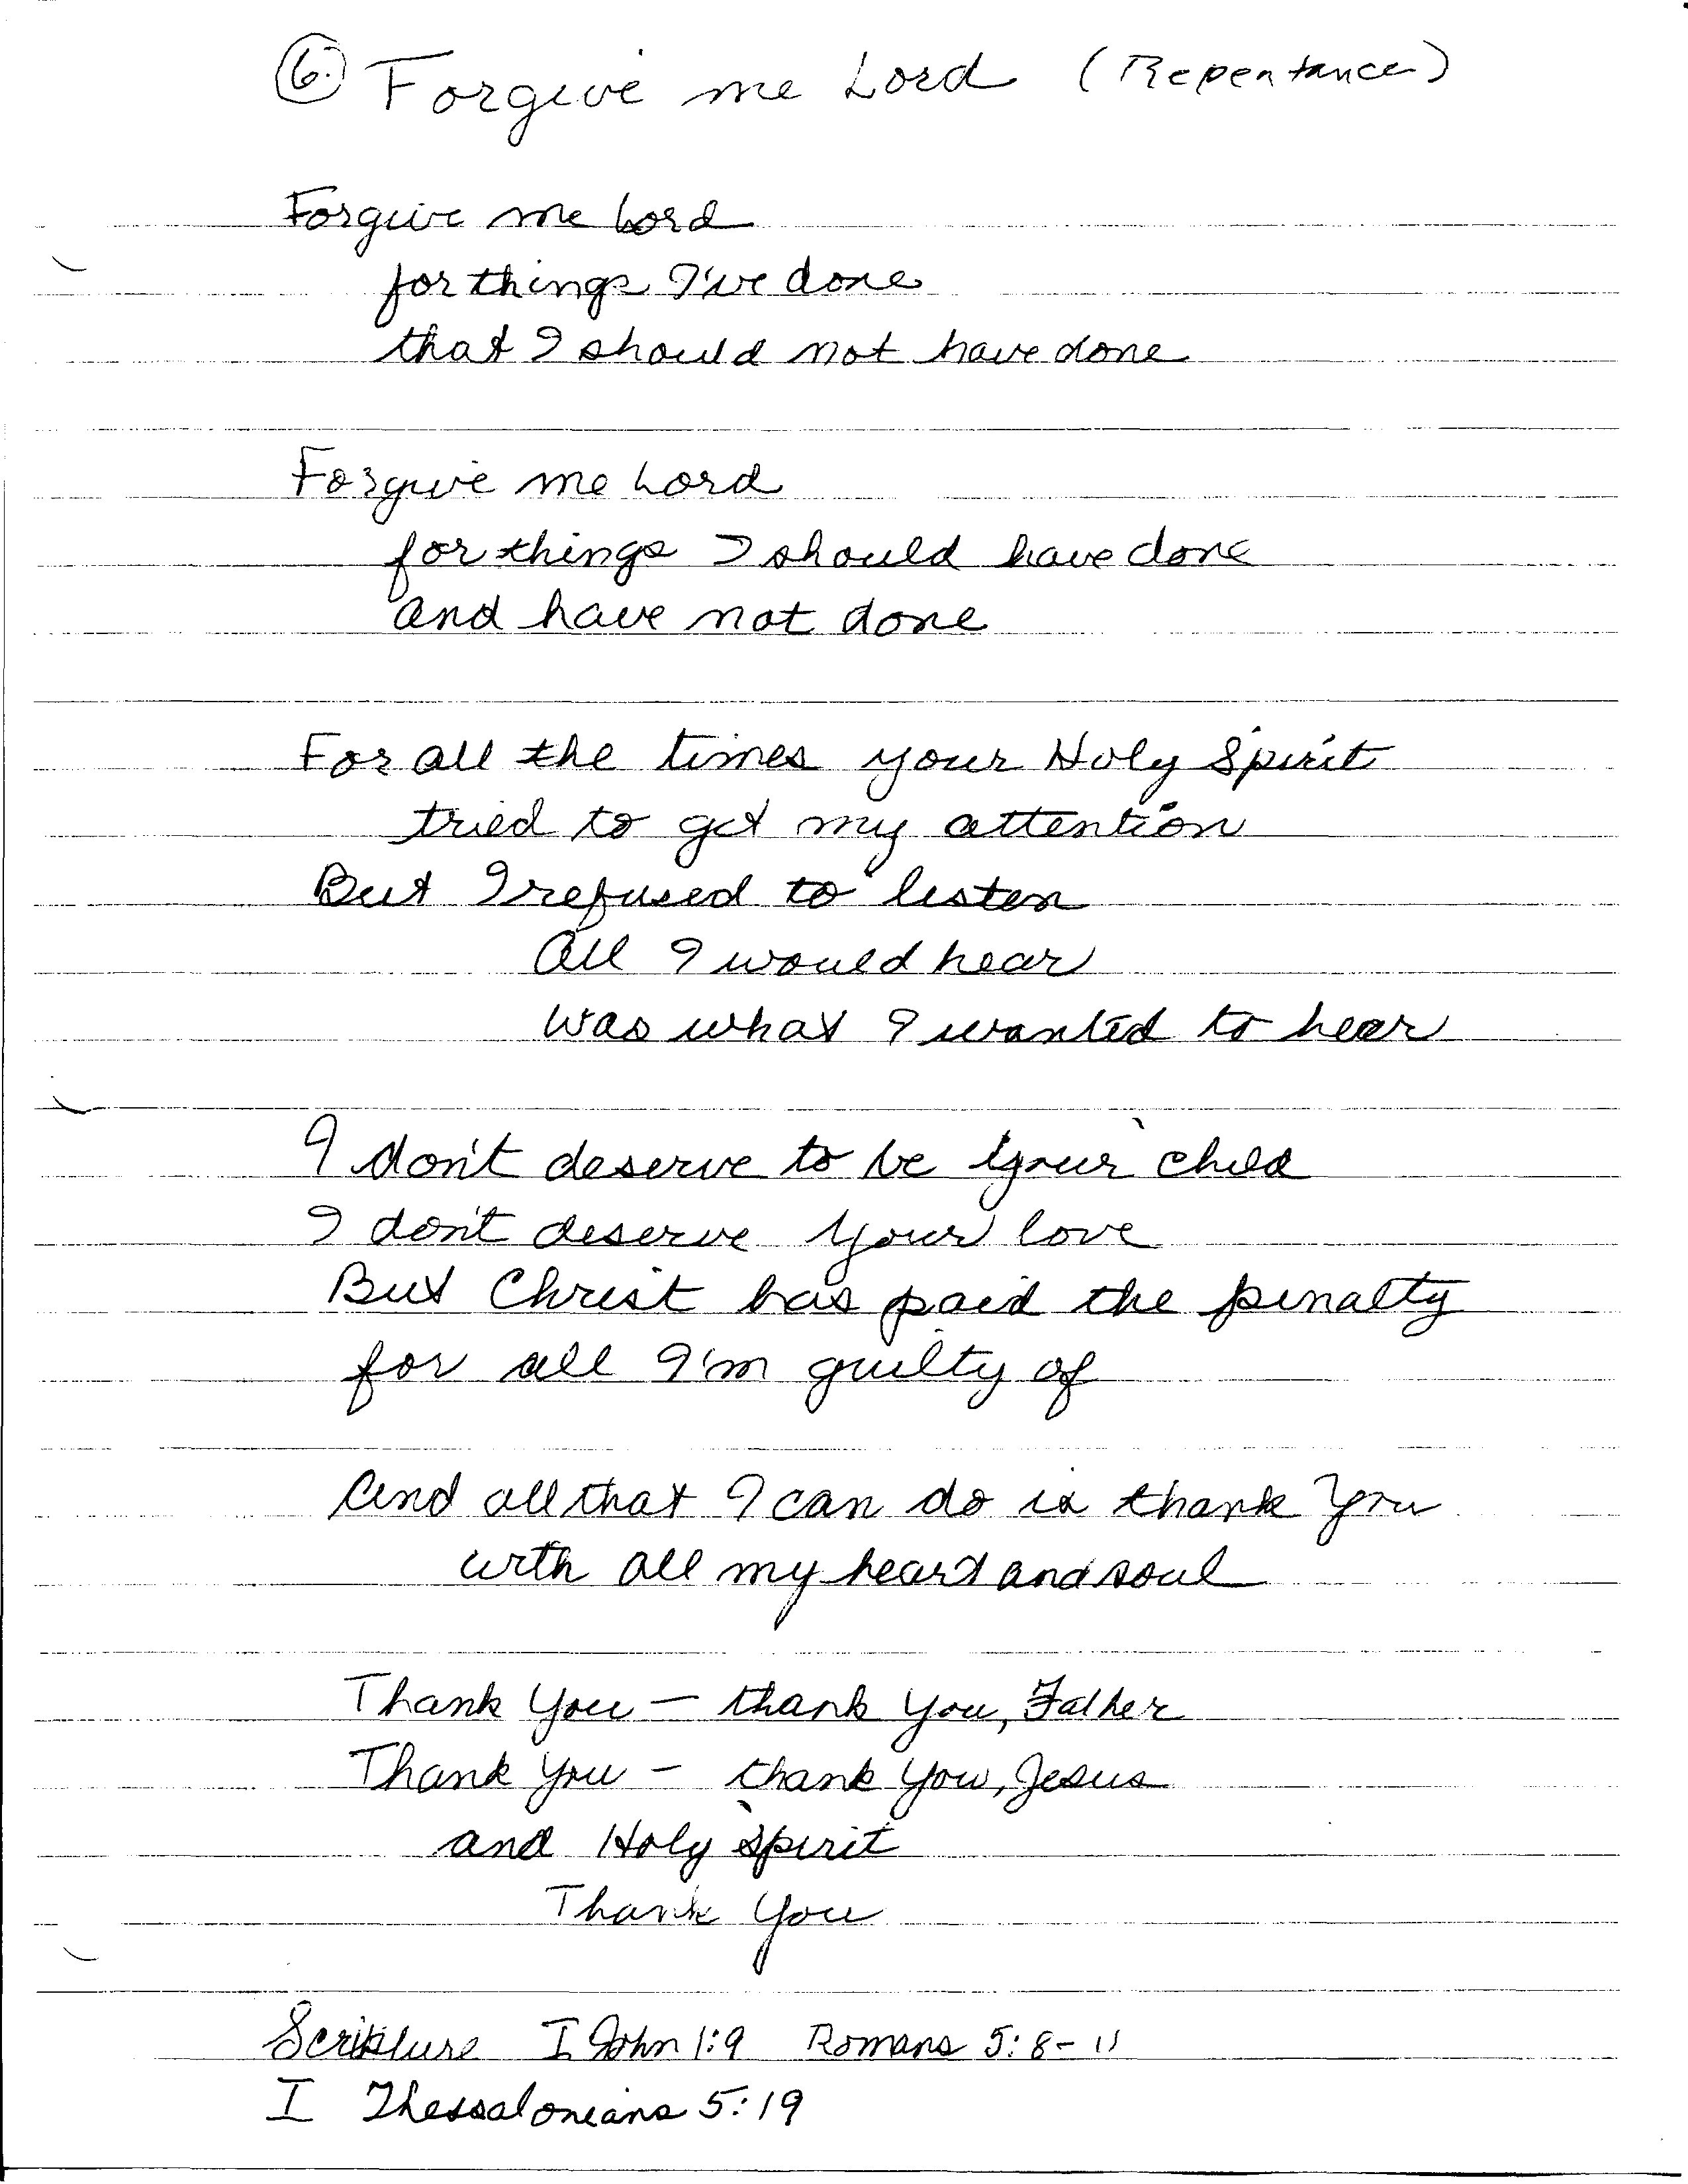 6. Forgive me Lord (Repentance)
Forgive me Lord
for things I've done
that I should not have done
Forgive me Lord
for things I should have done
and have not done
For all the times your Holy Spirit
tried to get my attention
But I refused to listen
All I would hear
Was what I wanted to hear
I don't deserve to be Your child
I don't deserve Your love
But Christ has paid the penalty
for all I'm guilty of
And all that I can do is thank You
with all my heart and soul
Thank You — thank You, Father
Thank You — thank You, Jesus
and Holy Spirit
Thank You
Scripture I John 1:9 Romans 5:8-11
I Thessalonians 5:19